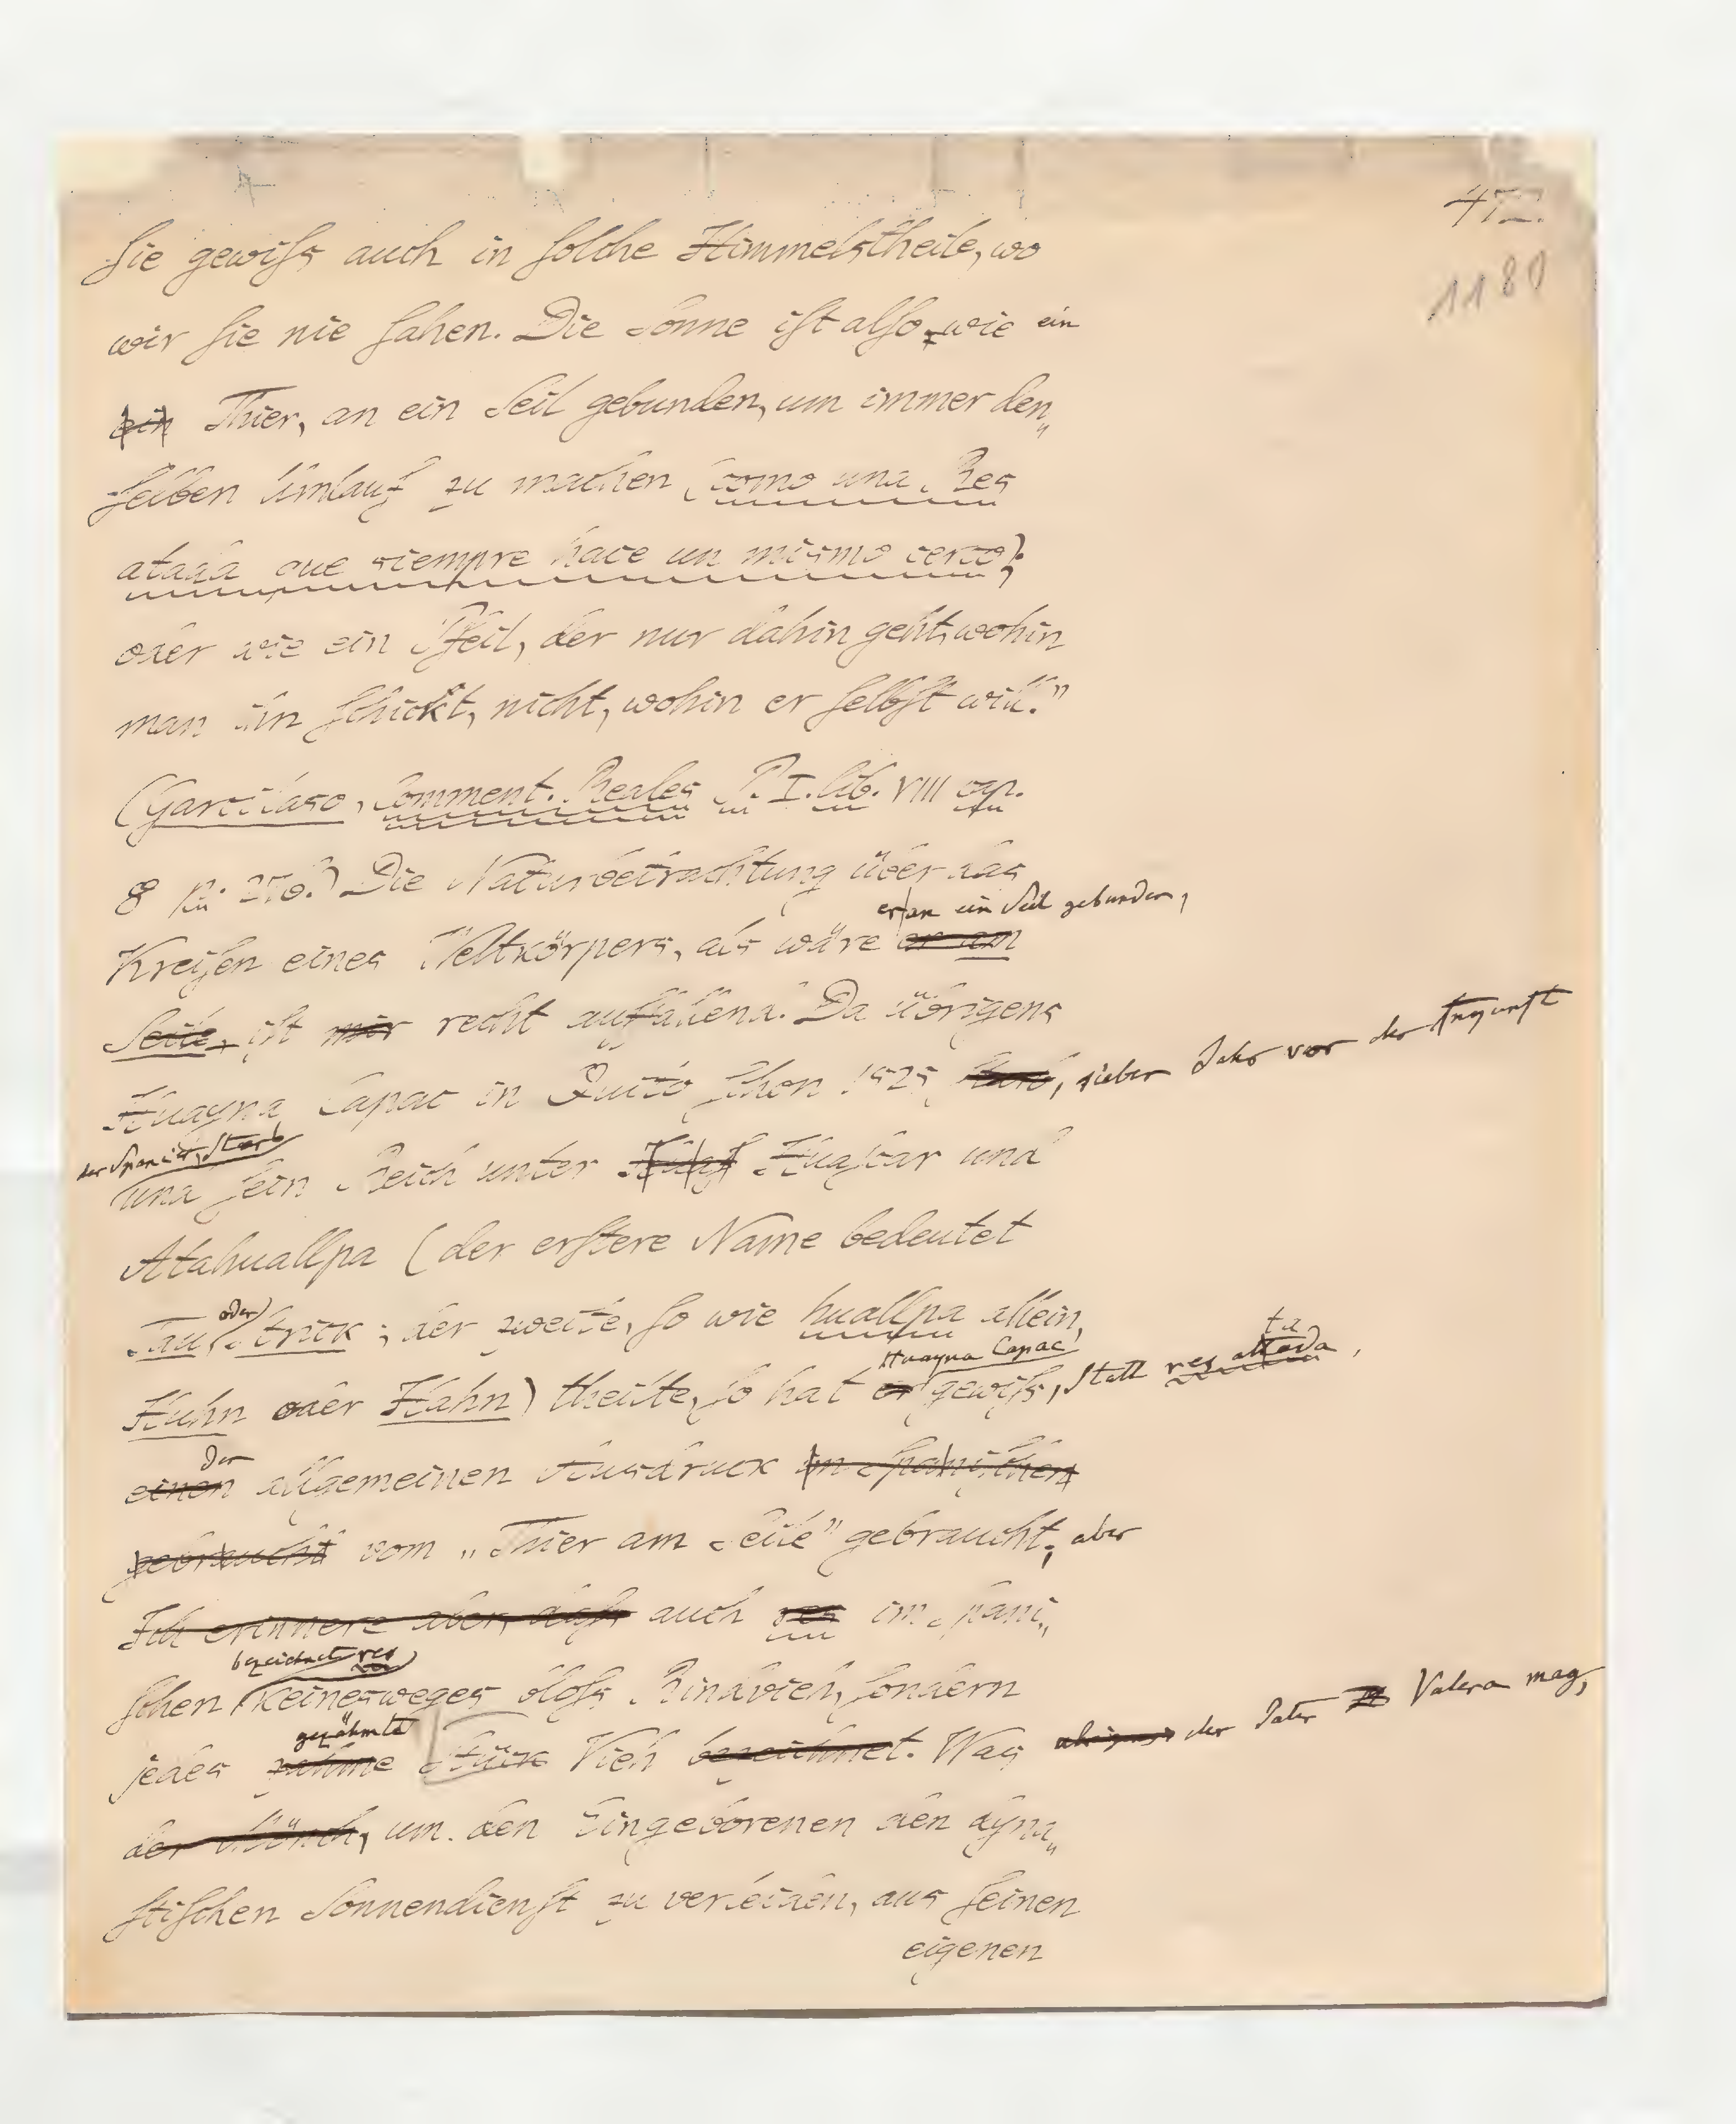 47.
1180
Sie gewiſs auch in ſolche Himmelstheile, wo
wir ſie nie ſahen. Die Sonne iſt alſo, wie ein
ein Thier, an ein Seil gebunden, um immer den„
ſelben Umlauf zu machen (como una Res
atada que siempre hace un mismo cerco);
oder wie ein Pfeil, der nur dahin geht, wohin
man ihn ſchickt, nicht, wohin er ſelbſt will."
(Garcilaso, Comment. Reales P. I. lib. VIII cap.
8 p. 276.) Die Naturbetrachtung über das
er an ein Seil gebunden,
Kreiſen eines Weltkörpers, als wäre er am
Seile, iſt mir recht auffallend. Da übrigens
Huayna Capac in Quito ſchon 1525 starb, sieben Jahr vor der Ankunft
der Spanier, starb
und ſein Reich unter Huaſcar und
Atahuallpa (der erſtere Name bedeutet
oder
Tau, Strick; der zweite, ſo wie huallpa allein,
Huayna Capac
Huhn oder Hahn) theilte, ſo hat er gewiſs, statt res
ta
der
einen allgemeinen Ausdruck im Spaniſchen
gebraucht vom „Thier am Seile" gebraucht; aber
Ich erinnere aber, daſs auch res im Spani„
bezeichnet res
ſchen keinesweges bloſs Rindvieh, ſondern
gezähmte
jedes zahme Stück Vieh bezeichnet. Was der Pater Valera mag,
der Mönch, um den Eingeborenen den dyna„
ſtiſchen Sonnendienſt zu verleiden, aus ſeinen
eigenen